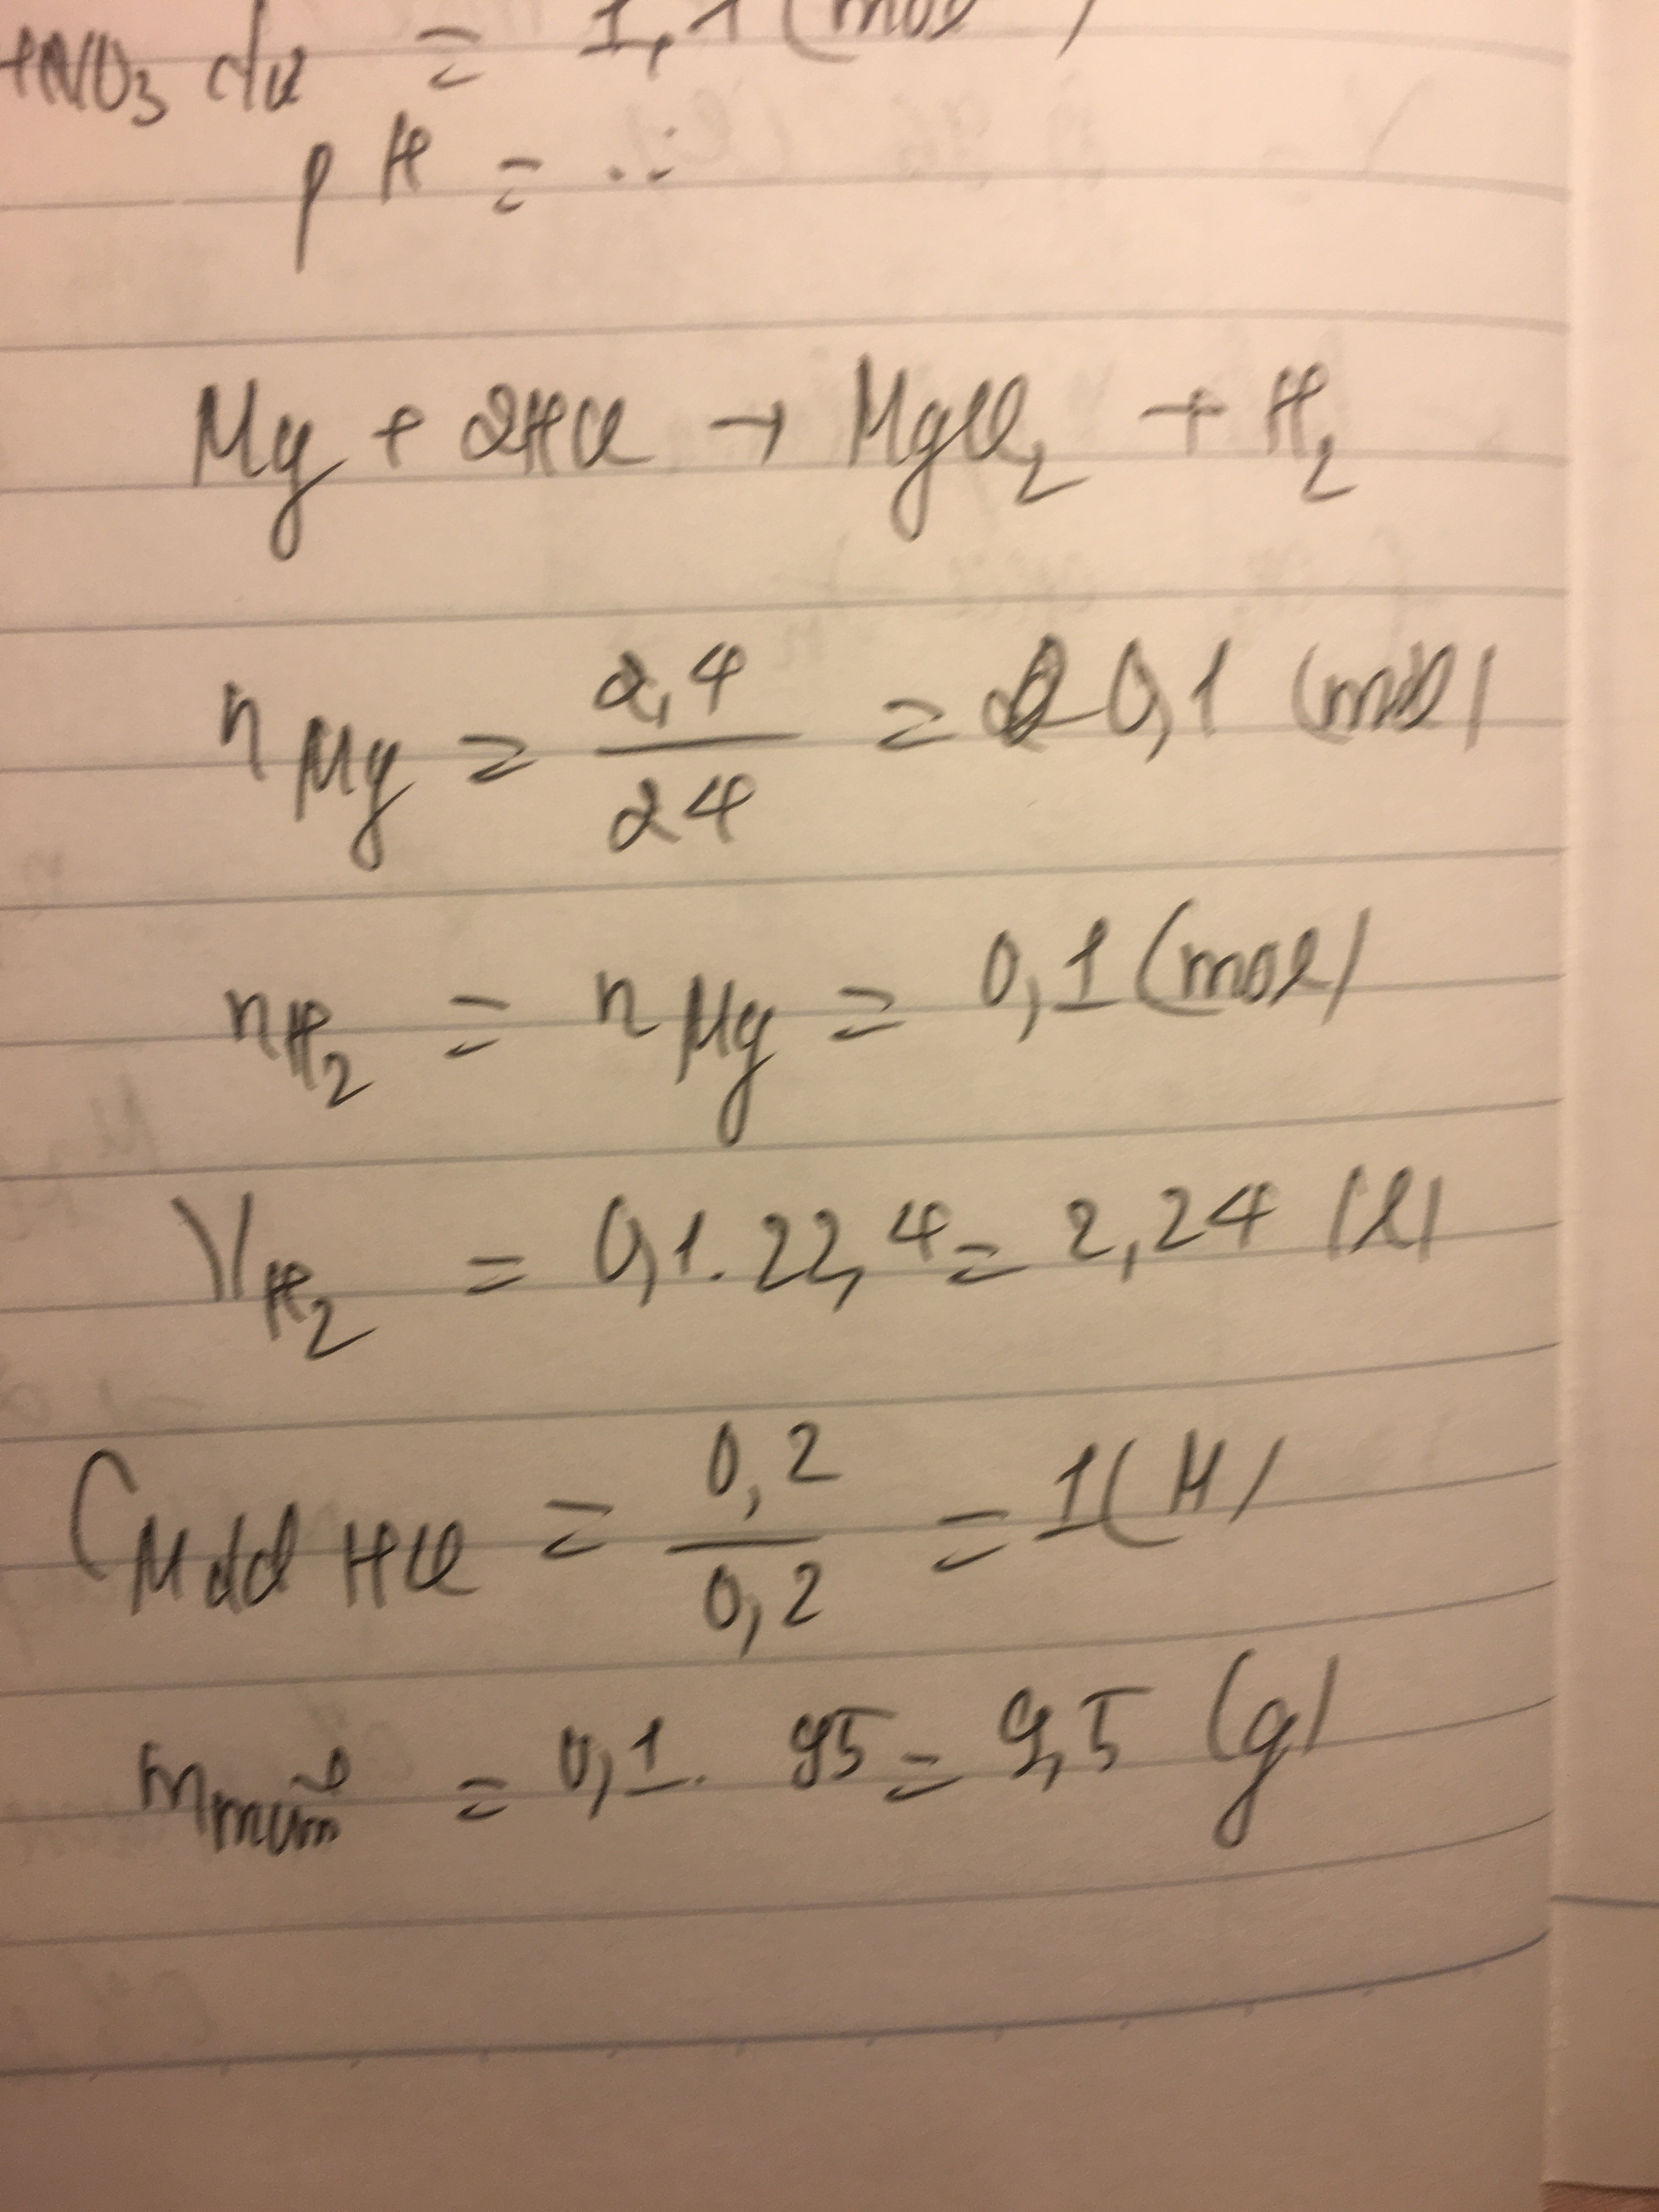 HNO3 dư = 1,1 (mol)
pH = ...
Mg + 2HCl → MgCl2 + H2
nMg = 2,4/24 = 0,1 (mol)
nH2 = nMg = 0,1 (mol)
VH2 = 0,1.22,4 = 2,24 (l)
CM dd HCl = 0,2/0,2 = 1 (M)
mmuối = 0,1. 95 = 9,5 (g)